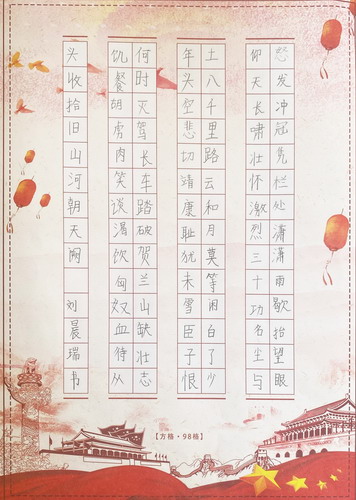 怒发冲冠凭栏处潇潇雨歇抬望眼
仰天长啸壮怀激烈三十功名尘与
土八千里路云和月莫等闲白了少
年头空悲切靖康耻犹未雪臣子恨
何时灭驾长车踏破贺兰山缺壮志
饥餐胡虏肉笑谈渴饮匈奴血待从
头收拾旧山河朝天阙 刘晨瑞书
【方格·98格】